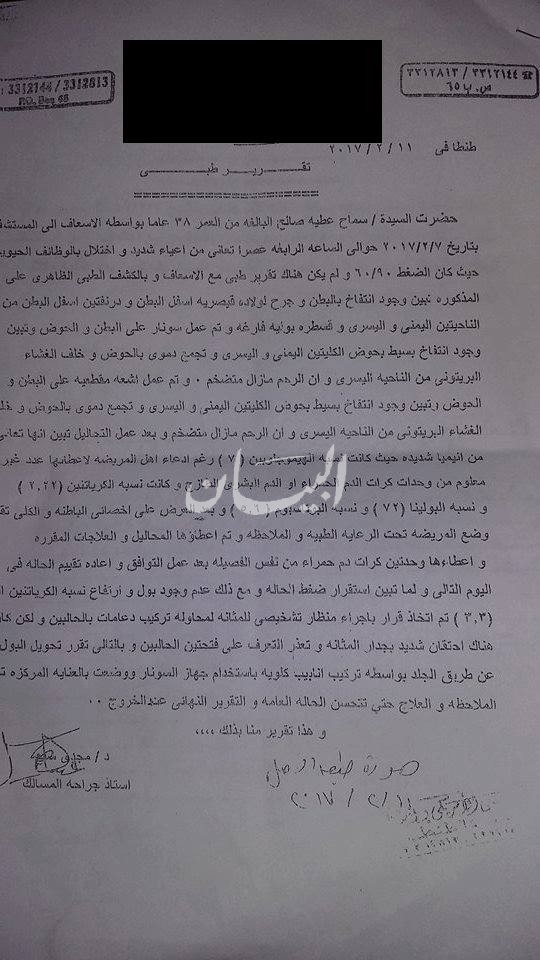 3312144 / 3312813
P.O. Bag 65
٣٣١٢٨١٣ / ٣٣١٢١٤٤ ☎
ص. ب ٦٥
طنطا فى ١١ / ٢ / ٢٠١٧
تقرير طبى
حضرت السيدة / سماح عطيه صالح البالغه من العمر ٣٨ عاما بواسطه الاسعاف الى المستشف
بتاريخ ٢٠١٧/٢/٧ حوالى الساعه الرابعه عصرا تعانى من اعياء شديد و اختلال بالوظائف الحيوي
حيث كان الضغط ٦٠/٩٠ و لم يكن هناك تقرير طبى مع الاسعاف و بالكشف الطبى الظاهرى على
المذكوره تبين وجود انتفاخ بالبطن و جرح لولاده قيصريه اسفل البطن و درنقتين اسفل البطن من
الناحيتين اليمنى و اليسرى و قسطره بوليه فارغه و تم عمل سونار على البطن و الحوض وتبين
وجود انتفاخ بسيط بحوض الكليتين اليمنى و اليسرى و تجمع دموى بالحوض و خلف الغشاء
البريتونى من الناحيه اليسرى و ان الرحم مازال متضخم ٠ و تم عمل اشعه مقطعيه على البطن و
الحوض وتبين وجود انتفاخ بسيط بحوض الكليتين اليمنى و اليسرى و تجمع دموى بالحوض و خلف
الغشاء البريتونى من الناحيه اليسرى و ان الرحم مازال متضخم و بعد عمل التحاليل تبين انها تعانى
من انيميا شديده حيث كانت نسبه الهيموجلوبين (٧) رغم ادعاء اهل المريضه لاعطائها عدد غير
معلوم من وحدات كرات الدم الحمراء او الدم البشرى الطازج و كانت نسبه الكرياتنين (٢.٢٢)
و نسبه البولينا (٧٢) و نسبه البوتاسيوم (٥.٦) و بعد العرض على اخصائى الباطنه و الكلى تق
وضع المريضه تحت الرعايه الطبيه و الملاحظه و تم اعطاؤها المحاليل و العلاجات المقرره
و اعطاءها وحدتين كرات دم حمراء من نفس الفصيله بعد عمل التوافق و اعاده تقييم الحاله فى
اليوم التالى و لما تبين استقرار ضغط الحاله و مع ذلك عدم وجود بول و ارتفاع نسبه الكرياتنين ال
(٣.٣) تم اتخاذ قرار باجراء منظار تشخيصى للمثانه لمحاوله تركيب دعامات بالحالبين و لكن كا
هناك احتقان شديد بجدار المثانه و تعذر التعرف على فتحتين الحالبين و بالتالى تقرر تحويل البول
عن طريق الجلد بواسطه تركيب انابيب كلويه باستخدام جهاز السونار ووضعت بالعنايه المركزه ت
الملاحظه و العلاج حتي تتحسن الحاله العامه و التقرير النهائى عندالخروج ٠٠
و هذا تقرير منا بذلك ،،،،
د/ مجدى
استاذ جراحه المسالك
صورة طبق الاصل
٢٠١٧ / ٢/ ١١
البيان